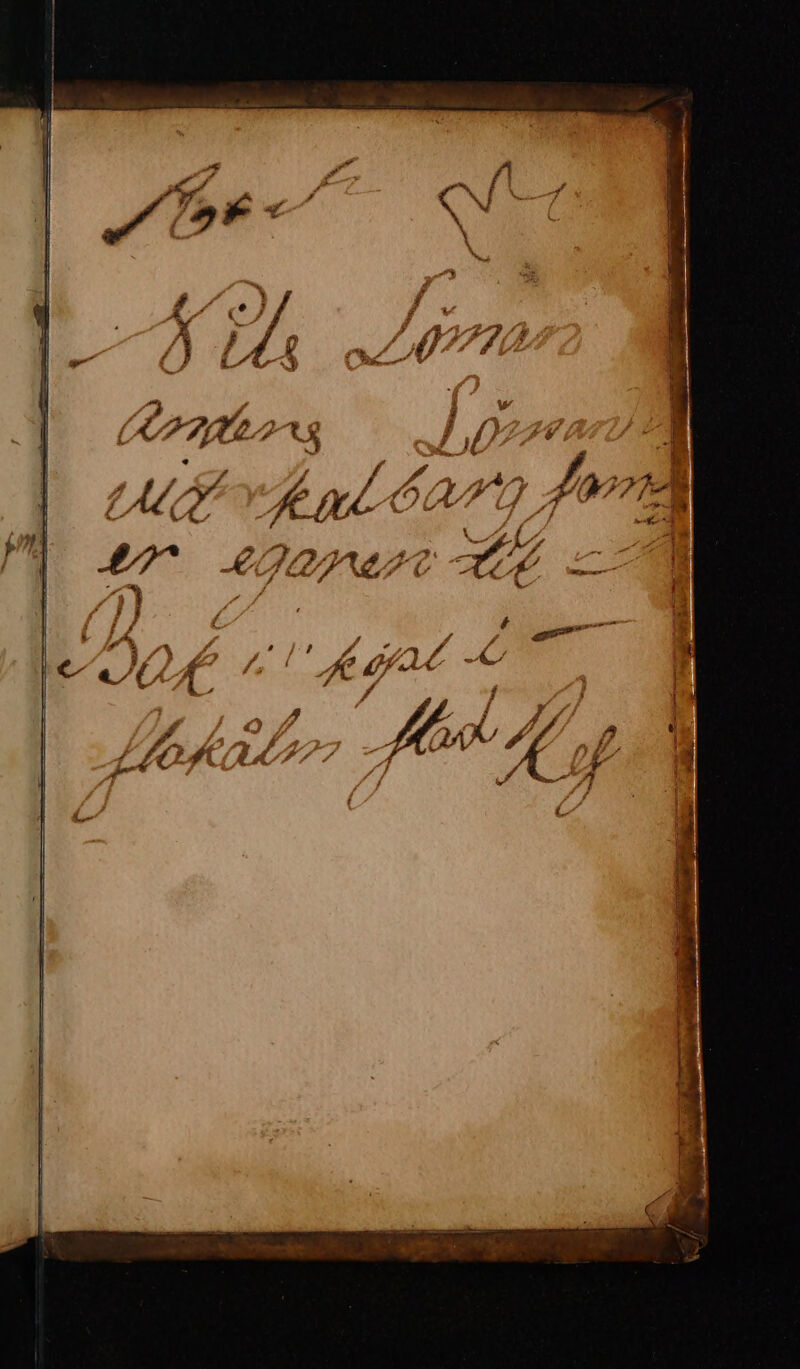 Nils Löman
Anders Löman
uid kalbarg som
er egaren til
Bok kőpt i
stokålm stad